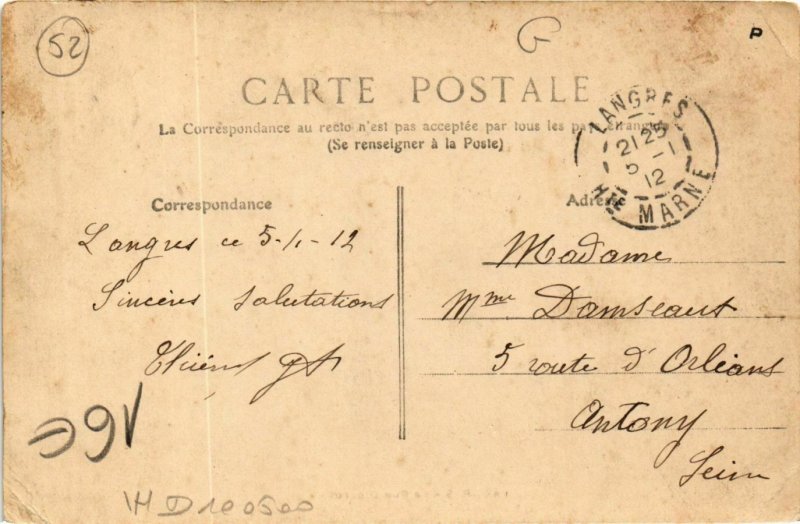 52
G
P
CARTE POSTALE
La Correspondance au recto n'est pas acceptée par tous les pays étrangers
(Se renseigner à la Poste)
LANGRES
2125
5 -1
12
Hte MARNE
Correspondance
Langres ce 5-1-12
Sincères Salutations
Adresse
Madame
Mme Damseaux
5 route d'Orléans
Antony
Seine
HD100500